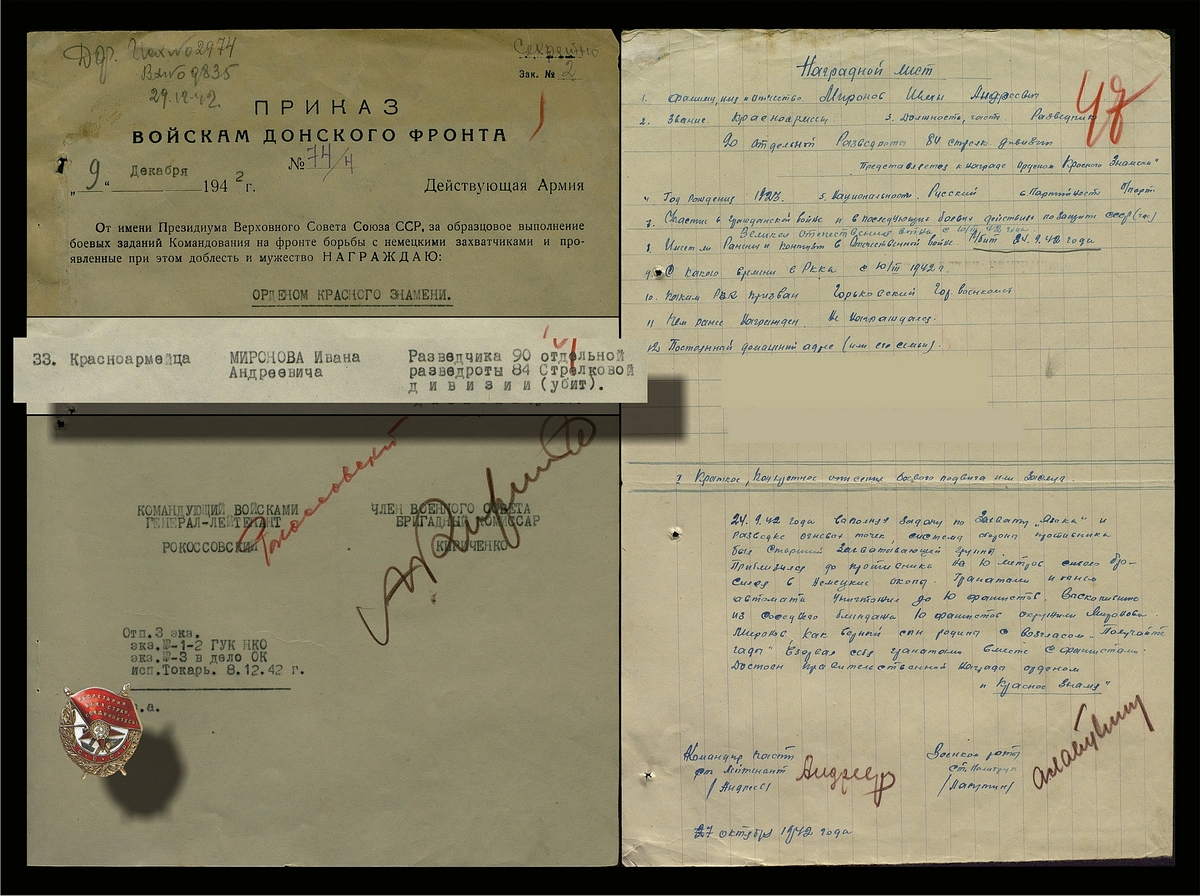 Секретно
Зак. № 2
29.12.42
ПРИКАЗ
ВОЙСКАМ ДОНСКОГО ФРОНТА
№ 74/н
„ 9 “ Декабря 1942 г.
Действующая Армия
От имени Президиума Верховного Совета Союза ССР, за образцовое выполнение
боевых заданий Командования на фронте борьбы с немецкими захватчиками и про-
явленные при этом доблесть и мужество НАГРАЖДАЮ:
ОРДЕНОМ КРАСНОГО ЗНАМЕНИ.
33. Красноармейца МИРОНОВА Ивана Разведчика 90 отдельной
Андреевича разведроты 84 Стрелковой
дивизии (убит).
Рокоссовский
КОМАНДУЮЩИЙ ВОЙСКАМИ ЧЛЕН ВОЕННОГО СОВЕТА
ГЕНЕРАЛ-ЛЕЙТЕНАНТ БРИГАДНЫЙ КОМИССАР
РОКОССОВСКИЙ КИРИЧЕНКО
Отп.3 экз.
экз.№-1-2 ГУК НКО
экз.№-3 в дело ОК
исп.Токарь. 8.12.42 г.
Наградной лист
47
1. Фамилия, имя и отчество Миронов Андреевич
2. Звание красноармеец 3. Должность, часть Разведчик
90 отдельной Разведроты 84 стрелк. дивизии
Представляется к награде Орденом Красного Знамени"
4. Год рождения 1923 5. Национальность Русский 6. Партийность б/парт.
7. Участие в гражданской войне и в последующих боевых действиях по защите СССР (где)
Великая отечественная война
8. Имеет ли Ранения и контузии в Отечественной войне. Убит 24.9.42 года
9. С какого времени в Ркка с 10/III 1942 г.
10. Каким РВК призван Горьковский Горвоенкомат
11 Чем ранее Награжден. Не Награждался.
12. Постоянный домашний адрес (или его семьи).
Краткое, Конкретное описание боевого подвига или заслуг.
24.9.42 года выполняя задачу по захвату „языка" и
разведке огневых точек, система обороны противника
был старший захватывающей группы.
Приблизился до противника на 10 метров смело бро-
сился в Немецкие окопы. Гранатами и огнем
автомата уничтожил до 10 фашистов. Выскочившие
из соседнего блиндажа 10 фашистов окружили Миронова.
Миронов как верный сын родины с возгласом „Получайте
гады" взорвал себя гранатами вместе с фашистами.
Достоин правительственной награды орденом
" Красное Знамя"
Командир части Военком роты
ст. Лейтенант ст. Политрук
/Андреев/ /Лапутин/
27 октября 1942 года